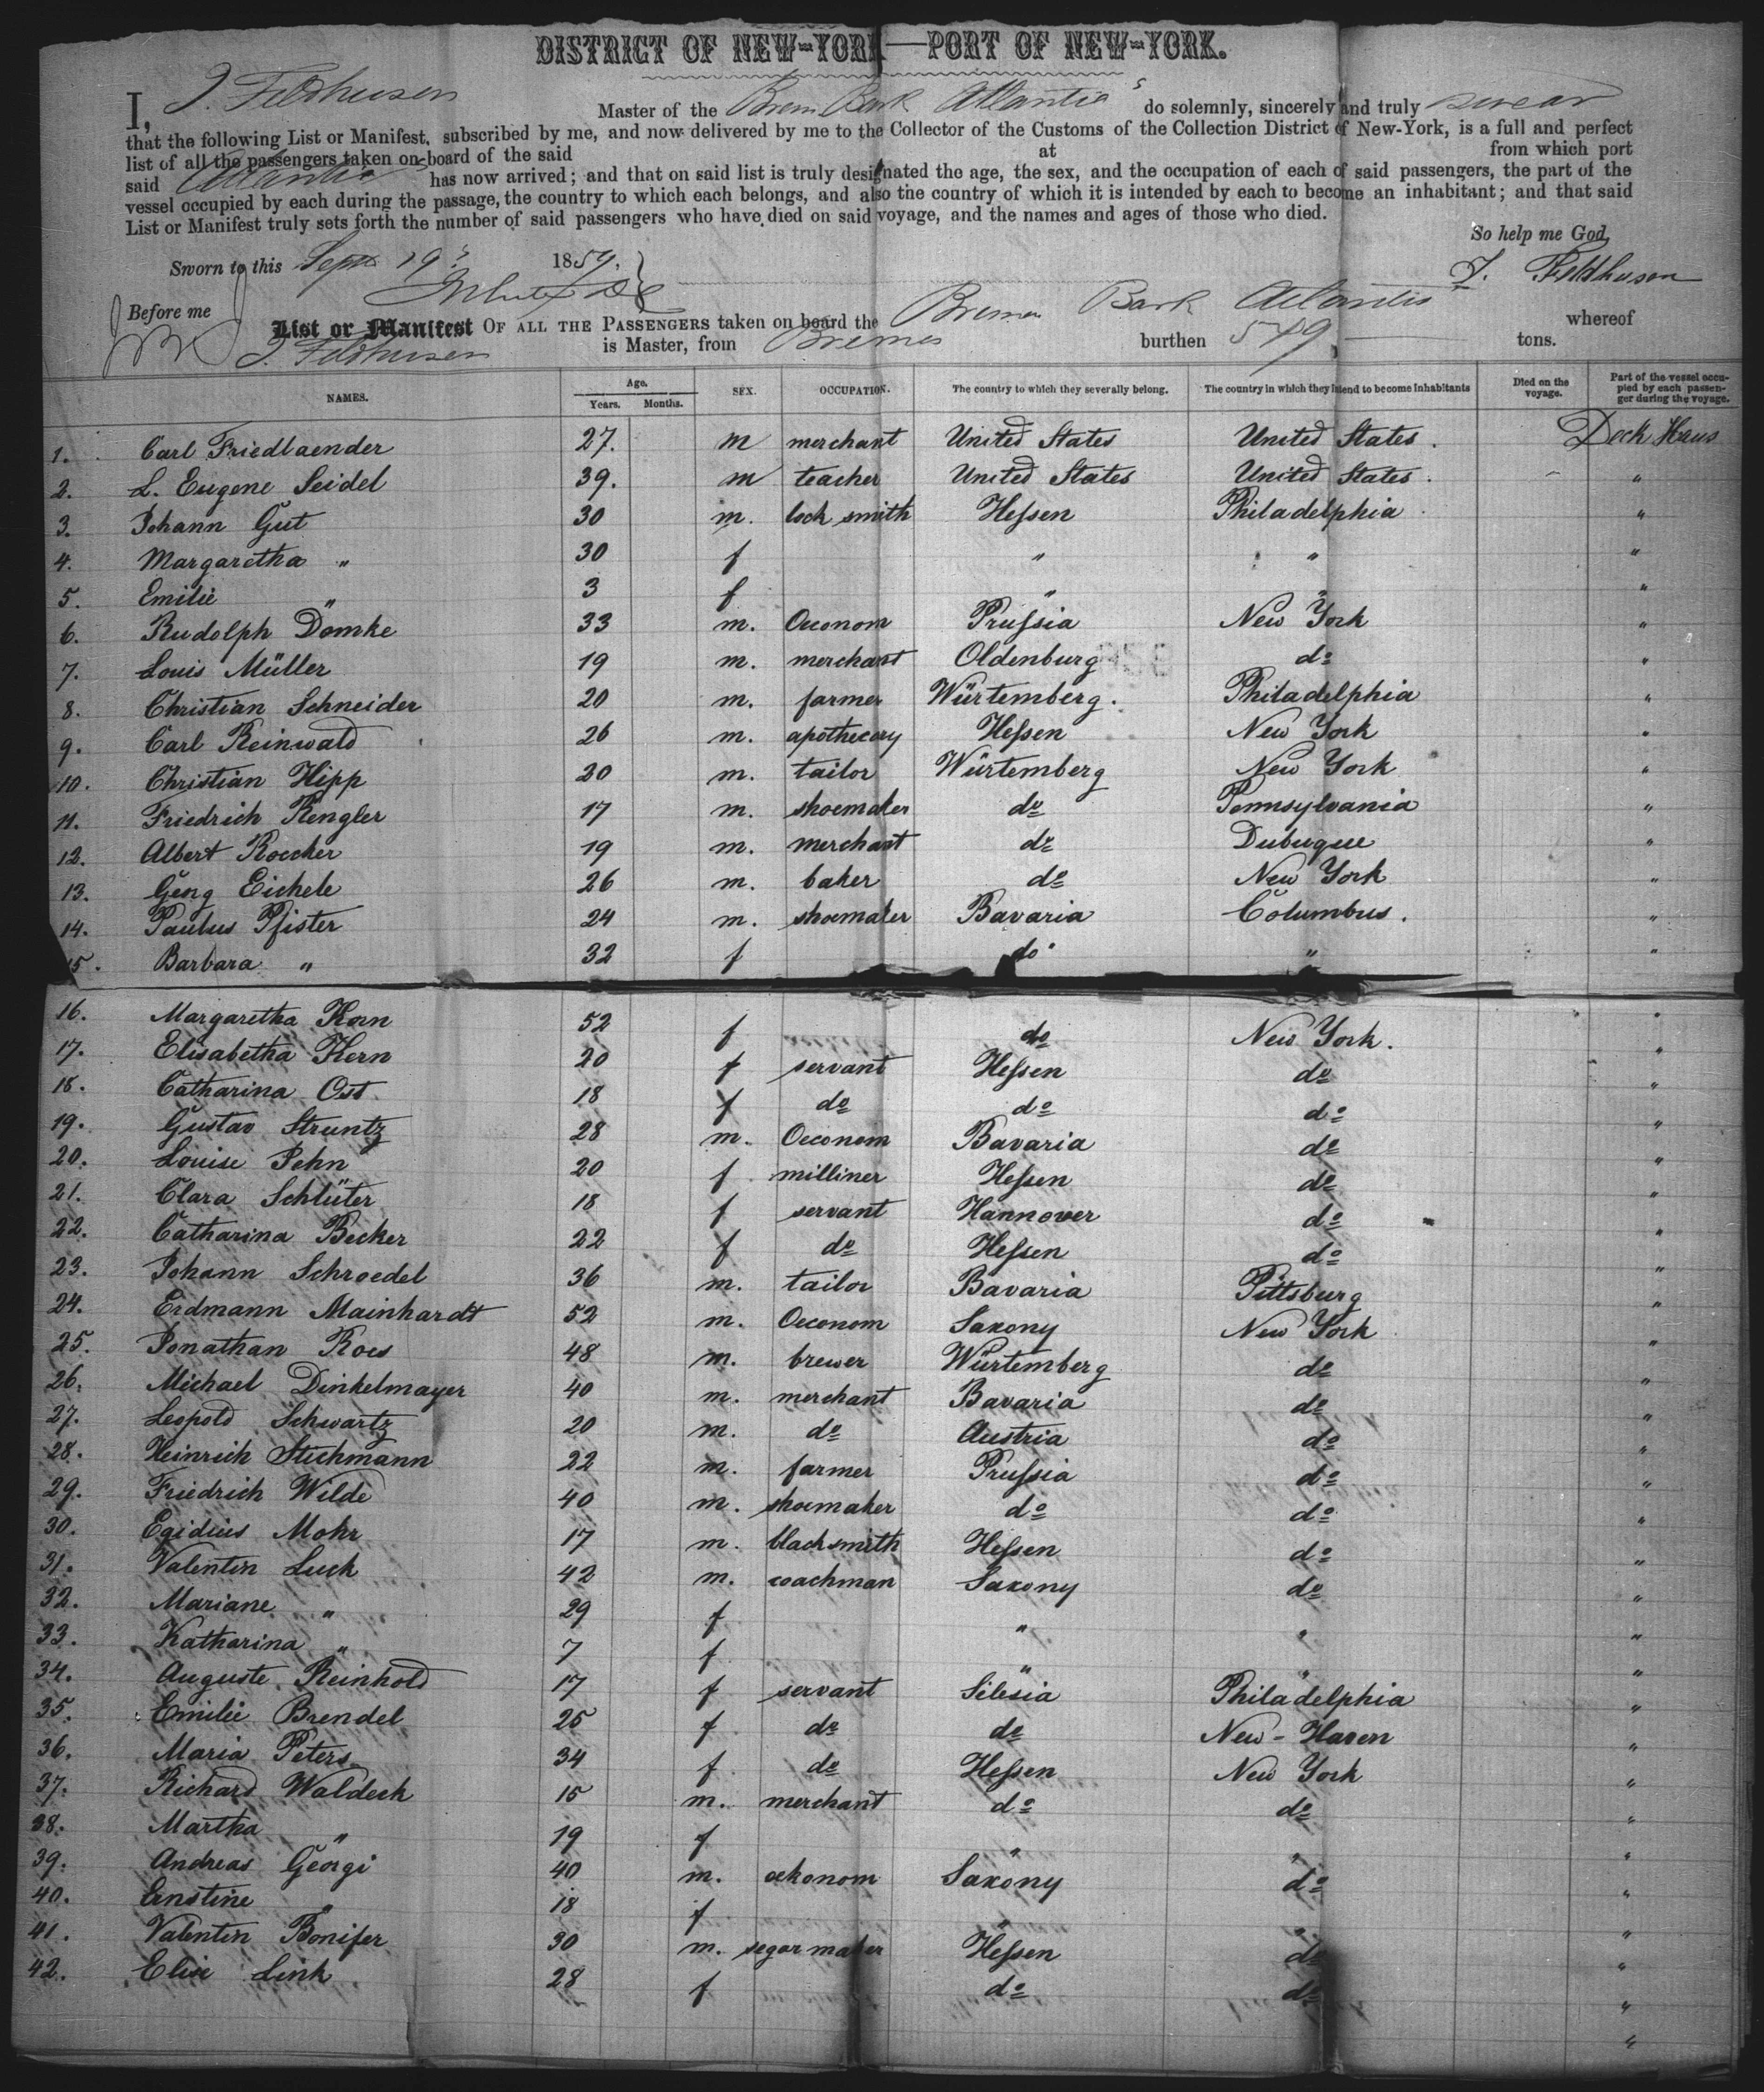 DISTRICT OF NEW-YORK—PORT OF NEW-YORK.
I, J. Feldhusen Master of the Brem. Bark Atlantis do solemnly, sincerely and truly swear
that the following List or Manifest, subscribed by me, and now delivered by me to the Collector of the Customs of the Collection District of New-York, is a full and perfect
list of all the passengers taken on board of the said at from which port
said Atlantis has now arrived; and that on said list is truly designated the age, the sex, and the occupation of each of said passengers, the part of the
vessel occupied by each during the passage, the country to which each belongs, and also the country of which it is intended by each to become an inhabitant; and that said
List or Manifest truly sets forth the number of said passengers who have died on said voyage, and the names and ages of those who died.
So help me God,
Sworn to this Sept 19 1859. J. Feldhusen
Before me
List or Manifest OF ALL THE PASSENGERS taken on board the Bremen Bark Atlantis whereof
J. Feldhusen is Master, from Bremen burthen 549 tons.
NAMES. Age. Years. Months. SEX. OCCUPATION. The country to which they severally belong. The country in which they intend to become inhabitants Died on the voyage. Part of the vessel occupied by each passenger during the voyage.
1. Carl Friedlaender 27. m merchant United States United States. Deck Haus
2. L. Eugene Seidel 39. m teacher United States United States. "
3. Johann Gut 30 m. lock smith Hessen Philadelphia "
4. Margaretha " 30 f " " "
5. Emilie " 3 f " " "
6. Rudolph Domke 33 m. Oeconom Prussia New York "
7. Louis Müller 19 m. merchant Oldenburg do "
8. Christian Schneider 20 m. farmer Würtemberg. Philadelphia "
9. Carl Reinwald 26 m. apothecary Hessen New York "
10. Christian Hipp 20 m. tailor Würtemberg New York "
11. Friedrich Rengler 17 m. shoemaker do Pennsylvania "
12. Albert Roecker 19 m. merchant do Dubuque "
13. Georg Eichele 26 m. baker do New York "
14. Paulus Pfister 24 m. shoemaker Bavaria Columbus. "
15. Barbara " 32 f do " "
16. Margaretha Korn 52 f do New York. "
17. Elisabetha Kern 20 f servant Hessen do "
18. Catharina Ost 18 f do do do "
19. Gustav Struntz 28 m. Oeconom Bavaria do "
20. Louise Jehn 20 f milliner Hessen do "
21. Clara Schlüter 18 f servant Hannover do "
22. Catharina Becker 22 f do Hessen do "
23. Johann Schroedel 36 m. tailor Bavaria Pittsburg "
24. Erdmann Mainhardt 52 m. Oeconom Saxony New York "
25. Jonathan Roes 48 m. brewer Würtemberg do "
26. Michael Dinkelmayer 40 m. merchant Bavaria do "
27. Leopold Schwartz 20 m. do Austria do "
28. Heinrich Stichmann 22 m. farmer Prussia do "
29. Friedrich Wilde 40 m. shoemaker do do "
30. Egidius Mohr 17 m. blacksmith Hessen do "
31. Valentin Luck 42 m. coachman Saxony do "
32. Mariane " 29 f " " "
33. Katharina " 7 f " " "
34. Auguste Reinhold 17 f servant Silesia Philadelphia "
35. Emilie Brendel 25 f do do New-Haven "
36. Maria Peters 34 f do Hessen New York "
37. Richard Waldeck 15 m. merchant do do "
38. Martha " 19 f " " "
39. Andreas Georgi 40 m. oekonom Saxony do "
40. Ernstine " 18 f " " "
41. Valentin Bonifer 30 m. segar maker Hessen do "
42. Elise Link 28 f do do "